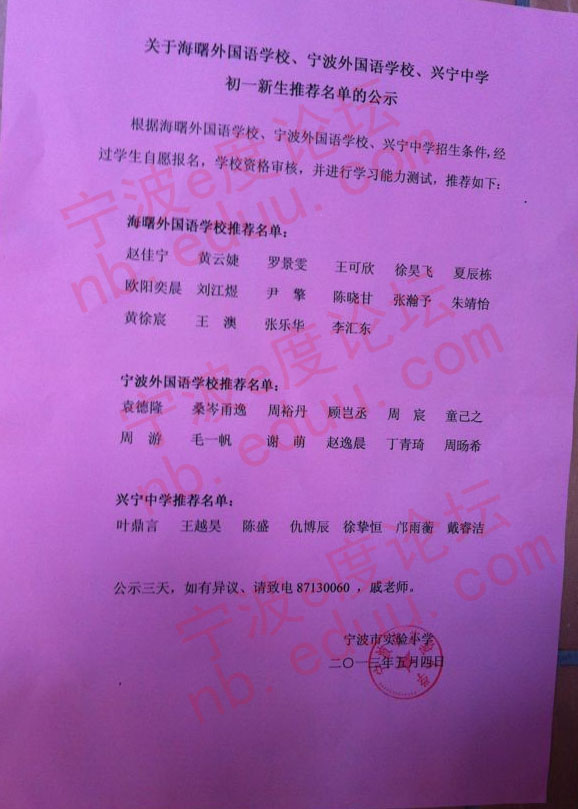 关于海曙外国语学校、宁波外国语学校、兴宁中学
初一新生推荐名单的公示
根据海曙外国语学校、宁波外国语学校、兴宁中学招生条件,经
过学生自愿报名，学校资格审核，并进行学习能力测试，推荐如下：
海曙外国语学校推荐名单：
赵佳宁 黄云婕 罗景雯 王可欣 徐昊飞 夏辰栋
欧阳奕晨 刘江煜 尹 擎 陈晓甘 张瀚予 朱靖怡
黄徐宸 王 澳 张乐华 李汇东
宁波外国语学校推荐名单：
袁德隆 桑岑甬逸 周裕丹 顾岂丞 周 宸 童己之
周 游 毛一帆 谢 萌 赵逸晨 丁青琦 周旸希
兴宁中学推荐名单：
叶鼎言 王越昊 陈盛 仇博辰 徐挚恒 邝雨蘅 戴睿洁
公示三天，如有异议、请致电 87130060 ，戚老师。
宁波市实验小学
二〇一三年五月四日
宁波e度论坛
nb. eduu. com
宁波e度论坛
nb. eduu. com
宁波e度论坛
nb. eduu. com